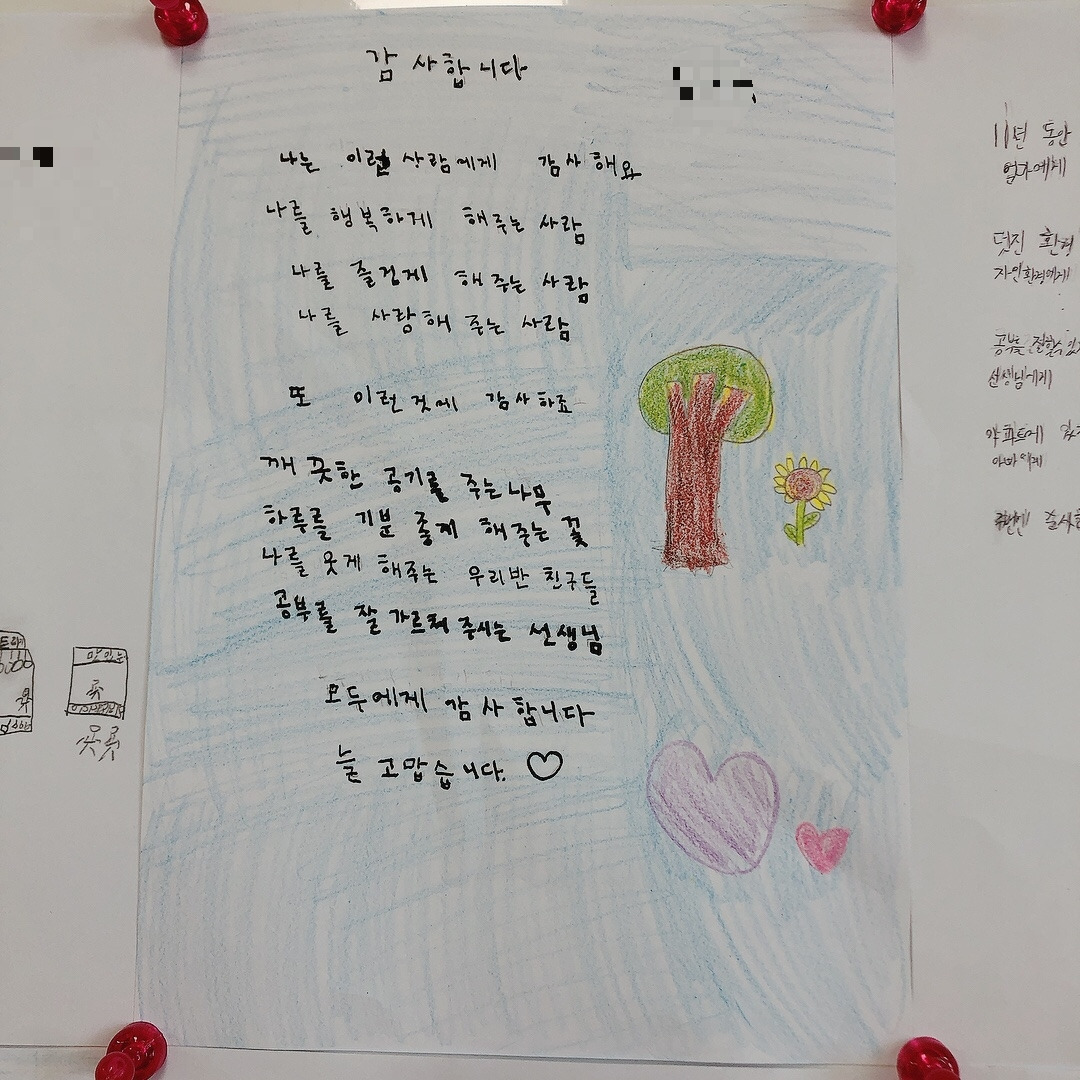 감사합니다
나는 이런 사람에게 감사해요
나를 행복하게 해주는 사람
나를 즐겁게 해주는 사람
나를 사랑해 주는 사람
또 이런것에 감사하죠
깨끗한 공기를 주는나무
하루를 기분 좋게 해주는 꽃
나를 웃게 해주는 우리반 친구들
공부를 잘 가르쳐 주시는 선생님
모두에게 감사합니다
늘 고맙습니다. ♡
11년 동안
엄마에게
멋진 환경
자연환경에게
공부를 잘할수
선생님에게
아빠에게